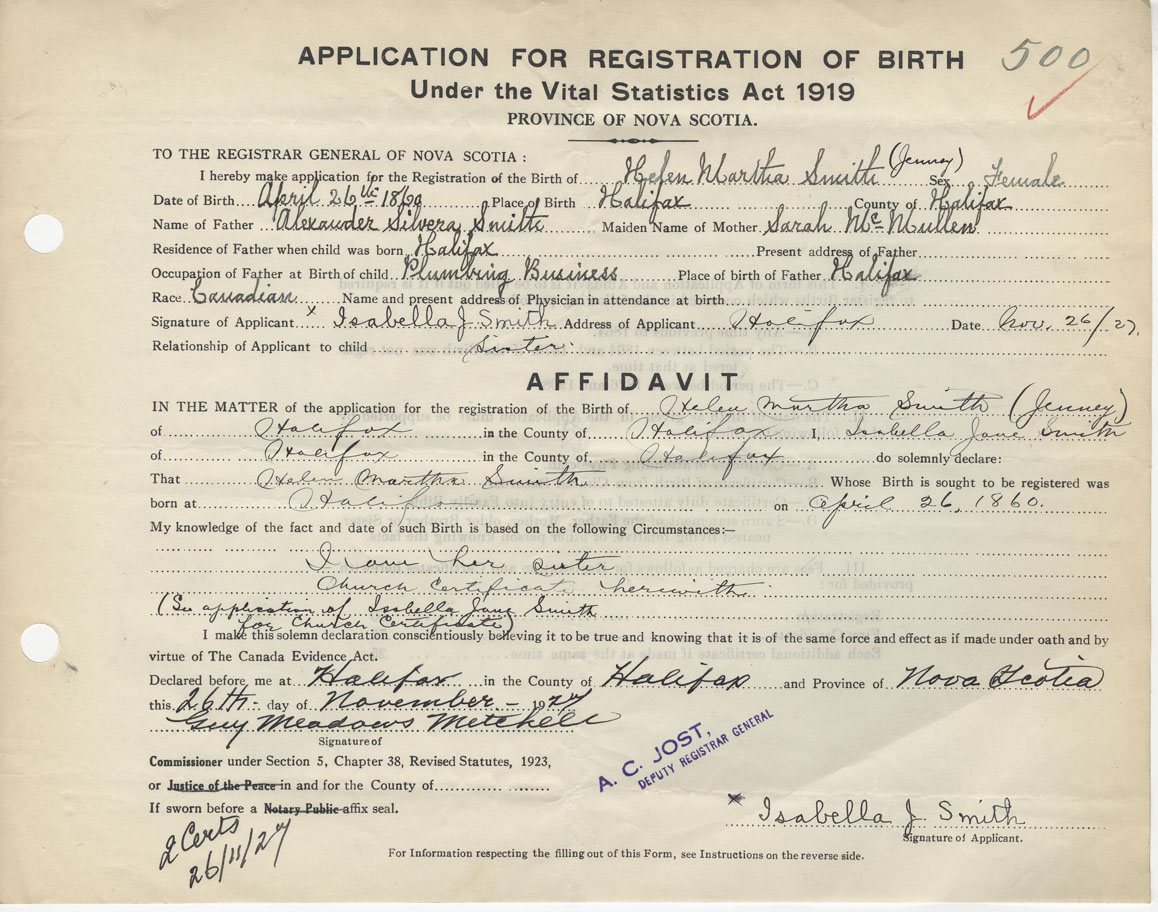 APPLICATION FOR REGISTRATION OF BIRTH 500
Under the Vital Statistics Act 1919
PROVINCE OF NOVA SCOTIA.
TO THE REGISTRAR GENERAL OF NOVA SCOTIA : (Jenney)
I hereby make application for the Registration of the Birth of Helen Martha Smith Sex Female
Date of Birth April 26th 1860 Place of Birth Halifax County of Halifax
Name of Father Alexander Silvera Smith Maiden Name of Mother Sarah McMullen
Residence of Father when child was born Halifax Present address of Father
Occupation of Father at Birth of child Plumbing Business Place of birth of Father Halifax
Race Canadian Name and present address of Physician in attendance at birth
Signature of Applicant x Isabella J Smith Address of Applicant Halifax Date Nov. 26/27.
Relationship of Applicant to child Sister.
AFFIDAVIT
IN THE MATTER of the application for the registration of the Birth of Helen Martha Smith (Jenney)
of Halifax in the County of Halifax I, Isabella Jane Smith
of Halifax in the County of Halifax do solemnly declare:
That Helen Martha Smith Whose Birth is sought to be registered was
born at Halifax on April 26, 1860.
My knowledge of the fact and date of such Birth is based on the following Circumstances:—
I am her sister
Church Certificate herewith
(See application of Isabella Jane Smith
for Church Certificate)
I make this solemn declaration conscientiously believing it to be true and knowing that it is of the same force and effect as if made under oath and by
virtue of The Canada Evidence Act.
Declared before me at Halifax in the County of Halifax and Province of Nova Scotia
this 26th day of November 1927
Guy Meadows Mitchell
Signature of
Commissioner under Section 5, Chapter 38, Revised Statutes, 1923,
or Justice of the Peace in and for the County of
If sworn before a Notary Public affix seal.
A. C. JOST,
DEPUTY REGISTRAR GENERAL
x Isabella J. Smith
Signature of Applicant.
2 Certs
26/11/27
For Information respecting the filling out of this Form, see Instructions on the reverse side.